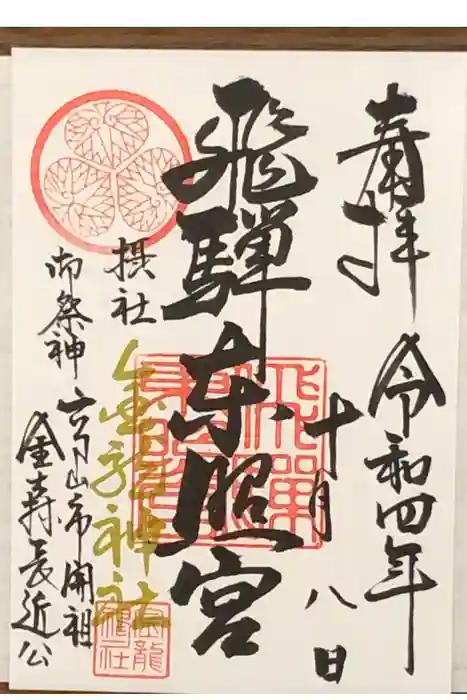 奉拝
令和四年
十月八日
飛騨東照宮
摂社
金龍神社
御祭神
高山市開祖
金森長近公
金龍
神社